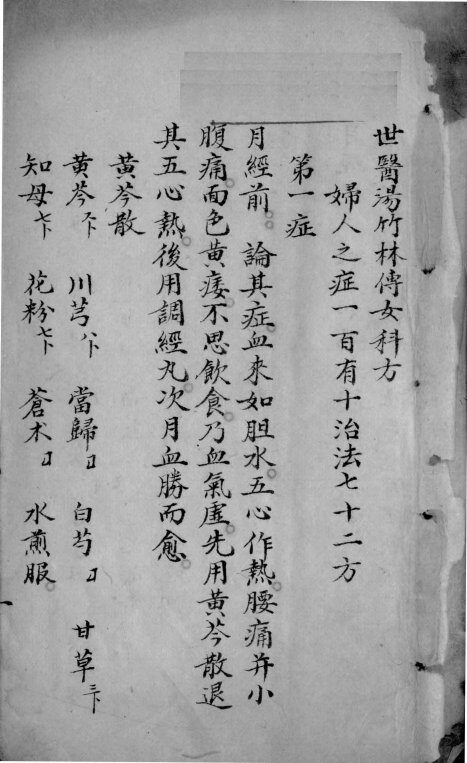 世醫湯竹林傳女科方
婦人之症一百有十治法七十二方
第一症
月經前 論其症血來如胆水五心作熱腰痛并小
腹痛面色黃痿不思飲食乃血氣虛先用黃芩散退
其五心熱後用調經丸次月血勝而愈
黃芩散
黃芩 川芎 當歸 白芍 甘草
知母 花粉 蒼术 水煎服